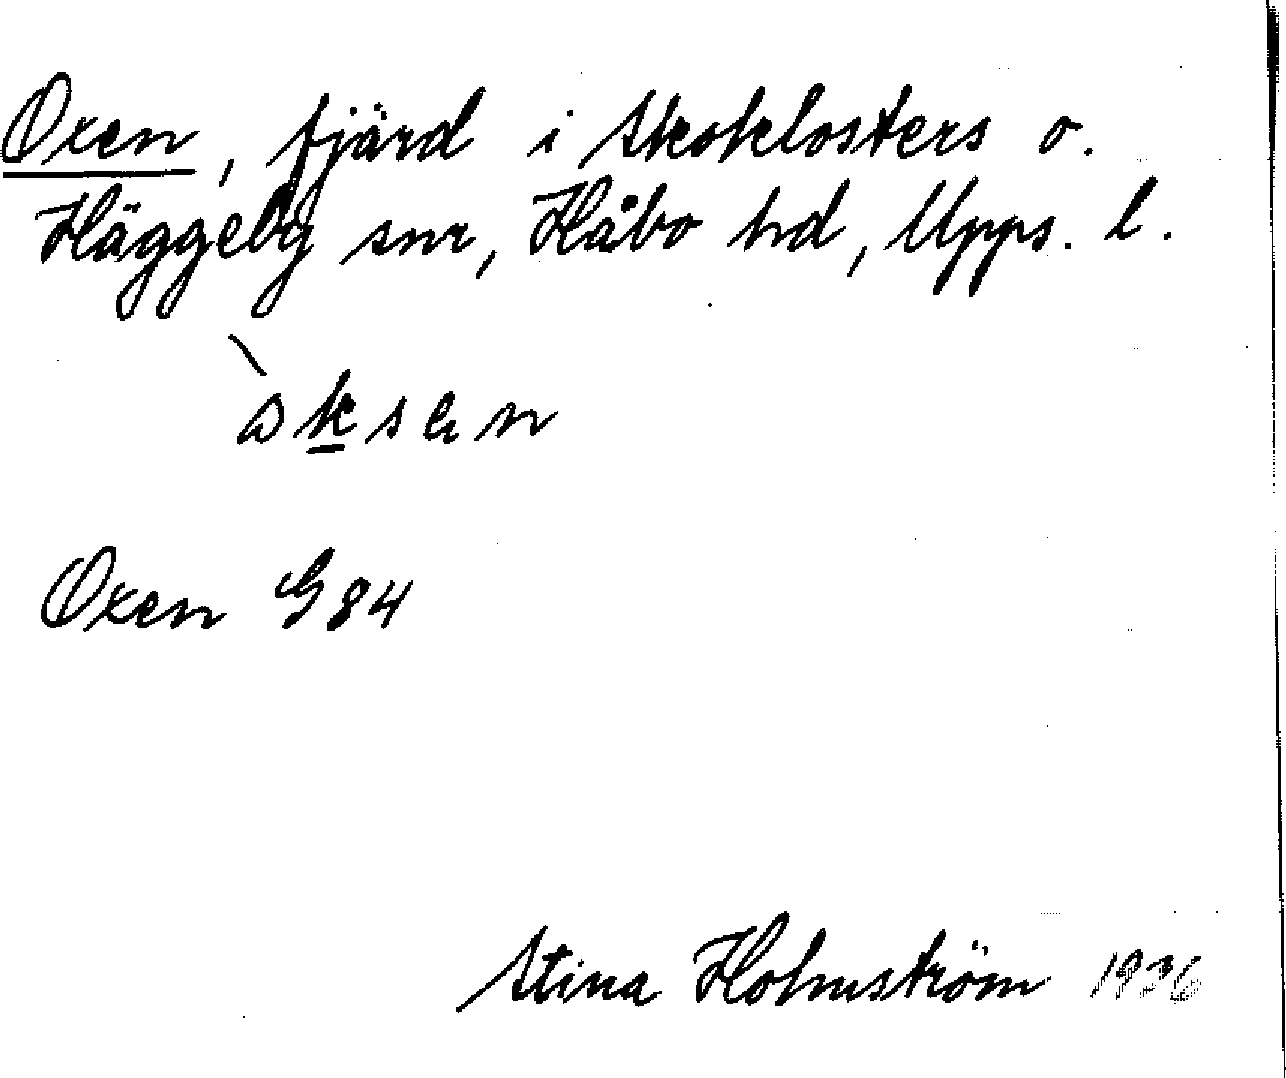 Oxen, fjärd i Skoklosters o.
Häggeby snr, Håbo hd, Upps. l.
Oxen G 84
Stina Holmström 1936